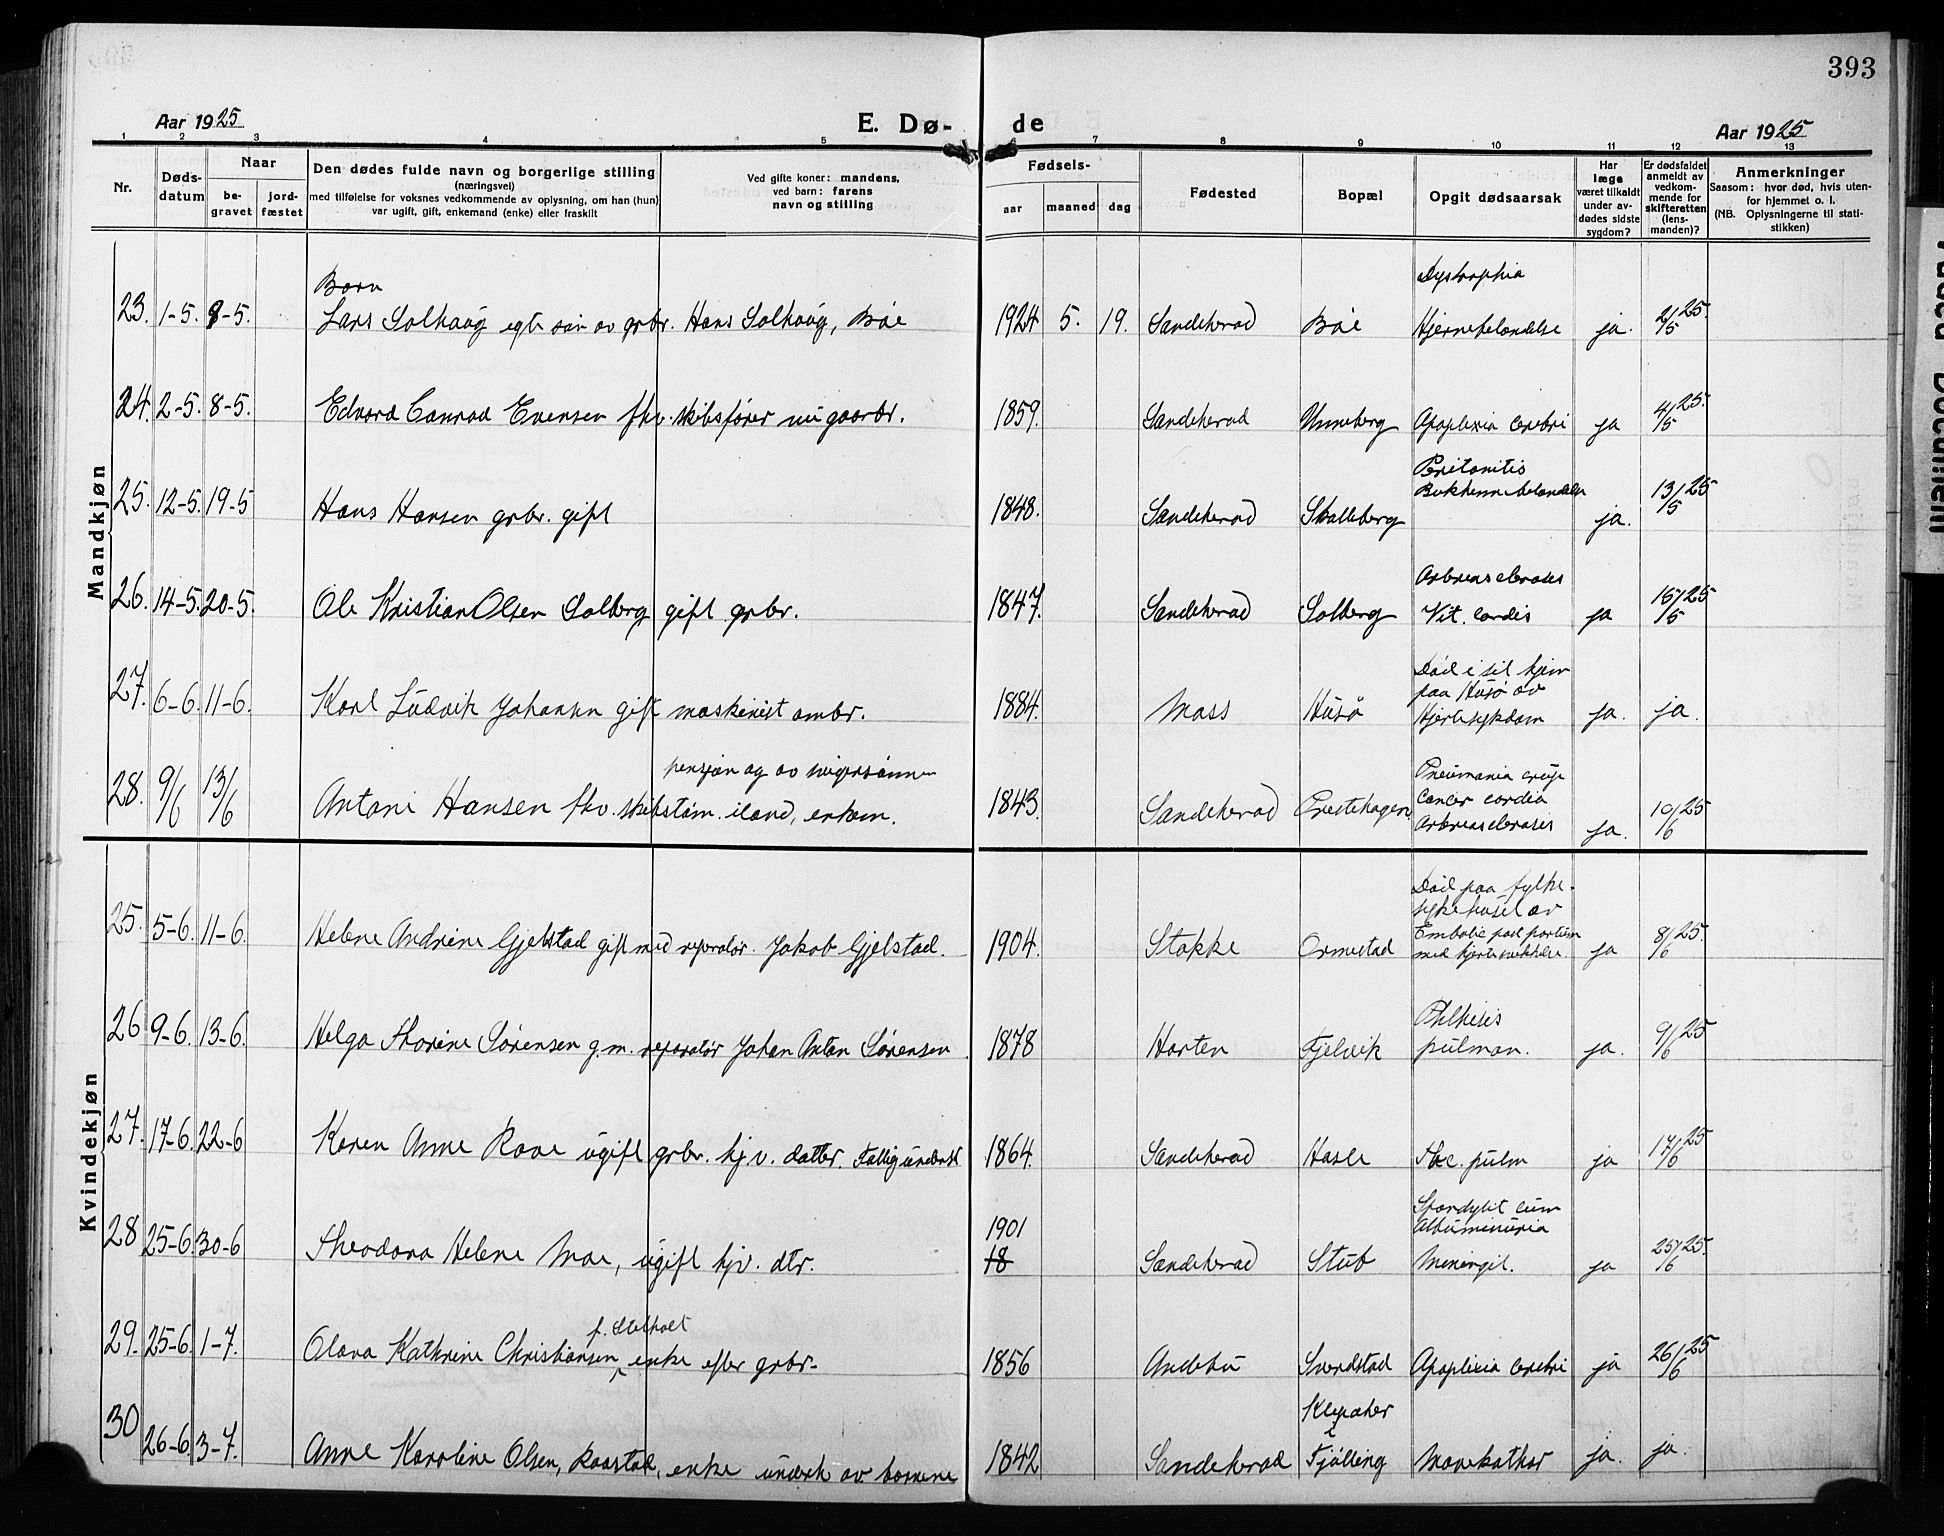 393
Aar 1925
E. Dø-
de
Aar 1925
1 2 3 4 5 6 7 8 9 10 11 12 13
Nr.
Døds-
datum
Naar
be-
gravet
jord-
fæstet
Den dødes fulde navn og borgerlige stilling
(næringsvei)
med tilføielse for voksnes vedkommende av oplysning, om han (hun)
var ugift, gift, enkemand (enke) eller fraskilt
Ved gifte koner: mandens,
ved barn: farens
navn og stilling
Fødsels-
aar
maaned
dag
Fødested
Bopæl
Opgit dødsaarsak
Har
læge
været tilkaldt
under av-
dødes sidste
sygdom?
Er dødsfaldet
anmeldt av
vedkom-
mende for
skifteretten
(lens-
manden)?
Anmerkninger
Saasom: hvor død, hvis uten-
for hjemmet o. l.
(NB. Oplysningerne til stati-
stikken)
Mandkjøn
Barn Dystrophia
23. 1-5. 8-5. Lars Solhaug egte søn av grbr. Hans Solhaug, Bøe 1924 5. 19. Sandeherad Bøe Hjernebetændelse ja. 2/5 25.
24. 2-5. 8-5. Edvard Conrad Evensen fhv. skibsfører nu gaardbr. 1859. Sandeherad Unneberg Apoplexia cerebri ja 4/5 25.
Peritonitis
Bukhinnebetændelse
25. 12-5. 19-5 Hans Hansen grbr. gift 1848. Sandeherad Skalleberg ja. 13/5 25
26. 14-5. 20-5. Ole Kristian Olsen Solberg gift grbr. 1847. Sandeherad Solberg Vit. cordis ja 15/5 25
Død i sit hjem
paa Husø av
27. 6-6. 11-6. Karl Ludvik Johansen gift maskinist ombr. 1884. Moss Husø Hjertesykdom ja. ja.
pensjon og av svigersønnen
Pneumonia crup
Cancer cardia
28. 9/6 13/6 Antoni Hansen fhv. skibstøm. iland, enkem. 1843. Sandeherad Prestehagen ja. 10/6 25
Kvindekjøn
Død paa fylke-
sykehuset av
Embolie post partum
25. 5-6. 11-6. Helene Andrine Gjelstad gift med reparatør. Jakob Gjelstad. 1904. Stokke Ormestad med hjertesvekkelse. ja 8/6 25.
Phthisis
26 9-6. 13-6. Helga Thorine Sørensen g.m. reparatør Johan Anton Sørensen. 1878 Horten Fjelvik pulmon. ja. 9/6 25
27. 17-6. 22-6 Karen Anne Rove ugift grbr. hjv. datter. Fattigunderst 1864. Sandeherad Hasle Tbc. pulm ja 17/6 25
1901 Spondylit cum
Albuminuria
28 25-6. 30-6 Theodora Helene Moe, ugift hjv. dtr. 18 Sandeherad Stub Meningit. ja 25/6 25.
29. 25-6. 1-7. Olava Kathrine Christiansen, enke efter grbr. 1856 Andebu Sverdstad Apoplexia cerebri ja 26/6 25
Klepaker
30 26-6. 3-7. Anne Karoline Olsen, Raastad, enke underh av barnene 1842 Sandeherad Fjølling Mavekathar ja. ja.